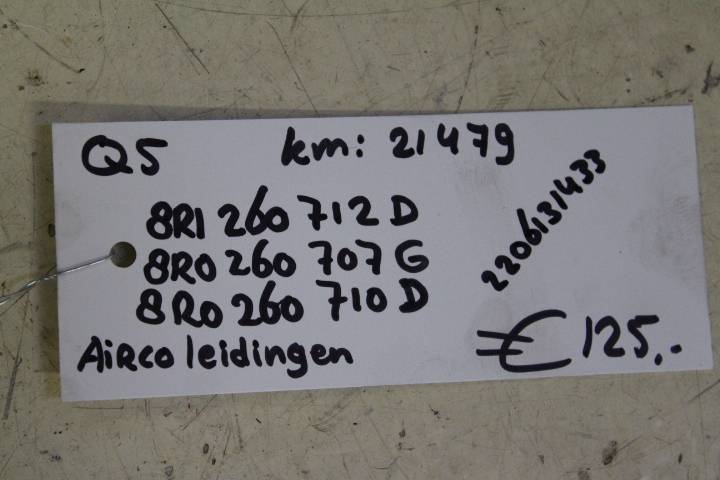 Q5 km: 21479
8R1 260 712 D
8R0 260 707 G
8R0 260 710 D
2206131433
Airco leidingen
€ 125,-